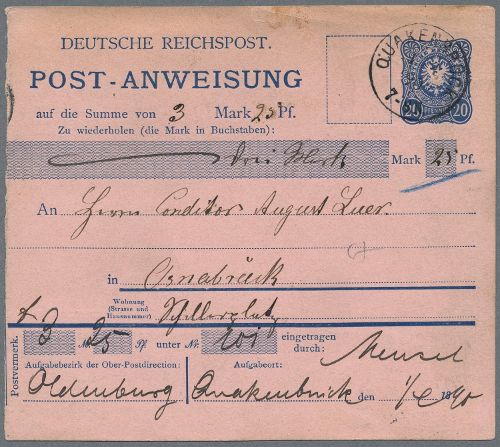 DEUTSCHE REICHSPOST.
POST-ANWEISUNG
auf die Summe von 3 Mark 25 Pf.
Zu wiederholen (die Mark in Buchstaben):
drei Mark Mark 25 Pf.
An Herrn Conditor August Luer.
in Osnabrück
Wohnung
(Strasse und
Hausnummer)
Schillerplatz
Postvermerk.
3 M. 25 Pf. unter Nr. 201 eingetragen
durch: Mensel
Aufgabebezirk der Ober-Postdirection: Aufgabeort:
Oldenburg Quakenbrück den 1890
QUAKENBRÜCK
20 PFENNIG 20